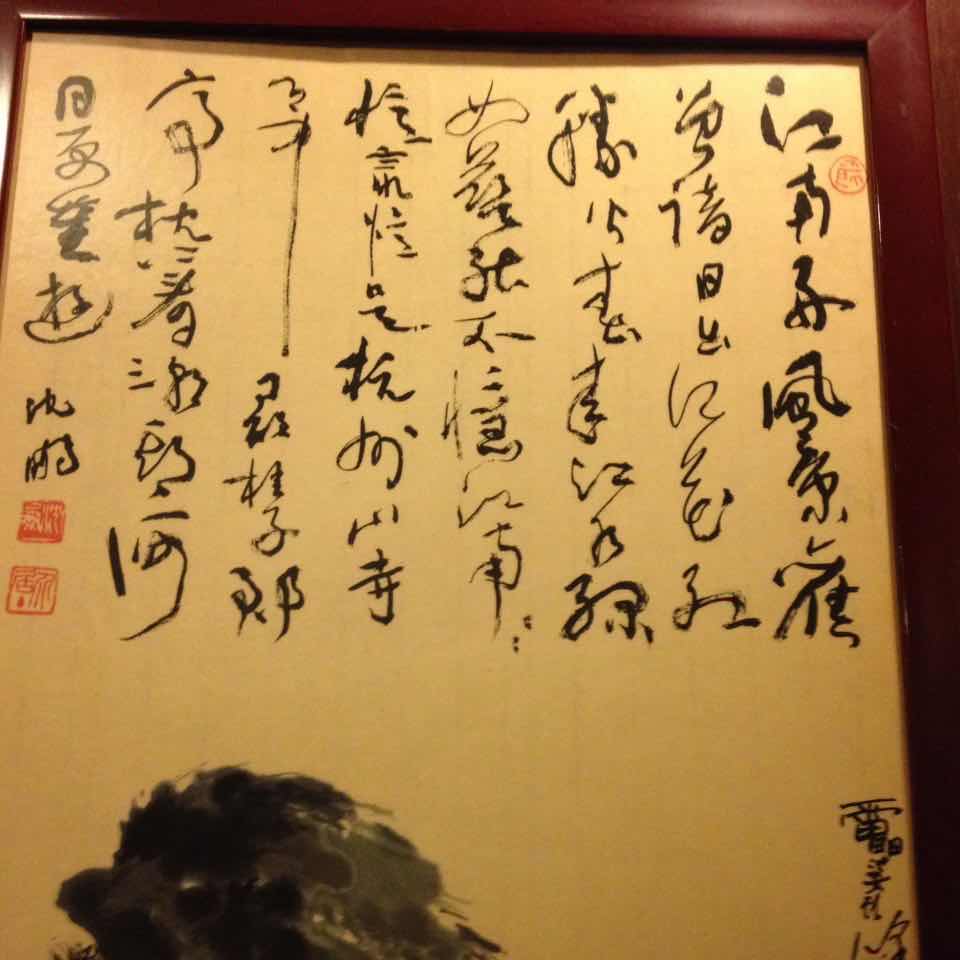 江南好風景舊
曾諳日出江花紅
勝火春來江水綠
如藍能不憶江南：：
憶最憶是杭州山寺
月中尋桂子郡
亭枕上看潮頭何
日更重遊 沈鵬